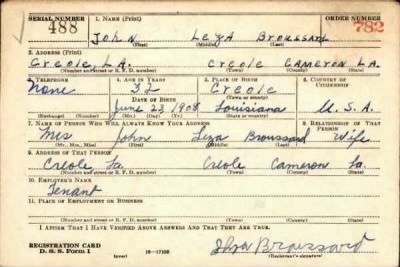 SERIAL NUMBER 1. NAME (Print) ORDER NUMBER
488 John Leza Broussard 782
(First) (Middle) (Last)
2. ADDRESS (Print)
Creole, LA. Creole Cameron LA.
(Number and street or R. F. D. number) (Town) (County) (State)
3. TELEPHONE 4. AGE IN YEARS 5. PLACE OF BIRTH 6. COUNTRY OF CITIZENSHIP
None 32 Creole
DATE OF BIRTH (Town or county)
June 23 1908 Louisiana U.S.A.
(Exchange) (Number) (Mo.) (Day) (Yr.) (State or country)
7. NAME OF PERSON WHO WILL ALWAYS KNOW YOUR ADDRESS 8. RELATIONSHIP OF THAT PERSON
Mrs John Leza Broussard Wife
(Mr., Mrs., Miss) (First) (Middle) (Last)
9. ADDRESS OF THAT PERSON
Creole La Creole Cameron La.
(Number and street or R. F. D. number) (Town) (County) (State)
10. EMPLOYER'S NAME
Tenant
11. PLACE OF EMPLOYMENT OR BUSINESS
(Number and street or R. F. D. number) (Town) (County) (State)
I AFFIRM THAT I HAVE VERIFIED ABOVE ANSWERS AND THAT THEY ARE TRUE.
REGISTRATION CARD
D. S. S. Form 1 (over) 16—17105 Broussard
(Registrant's signature)